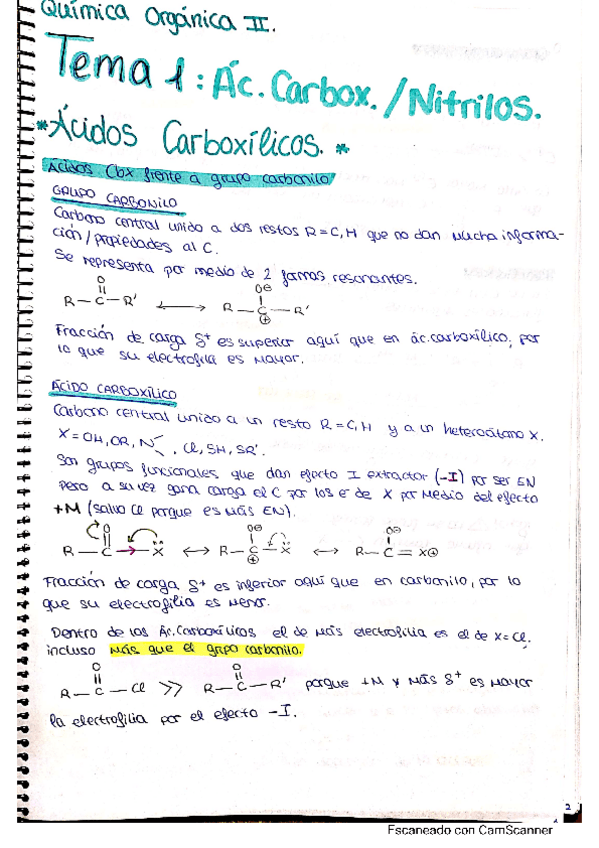 Química Orgánica II.
Tema 1: Ác. Carbox. / Nitrilos.
*Ácidos Carboxílicos. *
Ácidos Cbx frente a grupo carbonilo
GRUPO CARBONILO
Carbono central unido a dos restos R = C, H que no dan mucha informa-
ción / propiedades al C.
Se representa por medio de 2 formas resonantes.
O O⊖
R – C – R' ⟷ R – C – R'
⊕
Fracción de carga δ+ es superior aquí que en ác. carboxílico, por
lo que su electrofilia es mayor.
ÁCIDO CARBOXÍLICO
Carbono central unido a un resto R = C, H y a un heteroátomo X.
X = OH, OR, N, Cl, SH, SR'.
Son grupos funcionales que dan efecto I extractor (-I) por ser EN
pero a su vez gana carga el C por los e⁻ de X por medio del efecto
+M (salvo Cl porque es más EN).
O O⊖ O⊖
R – C → X ⟷ R – C – X ⟷ R – C = X⊕
⊕
Fracción de carga δ+ es inferior aquí que en carbonilo, por lo
que su electrofilia es menor.
Dentro de los Ác. Carboxílicos el de más electrofilia es el de X = Cl,
incluso más que el grupo carbonilo.
O O
R – C – Cl >> R – C – R' porque +M y más δ+ es mayor
la electrofilia por el efecto -I.
2
Escaneado con CamScanner